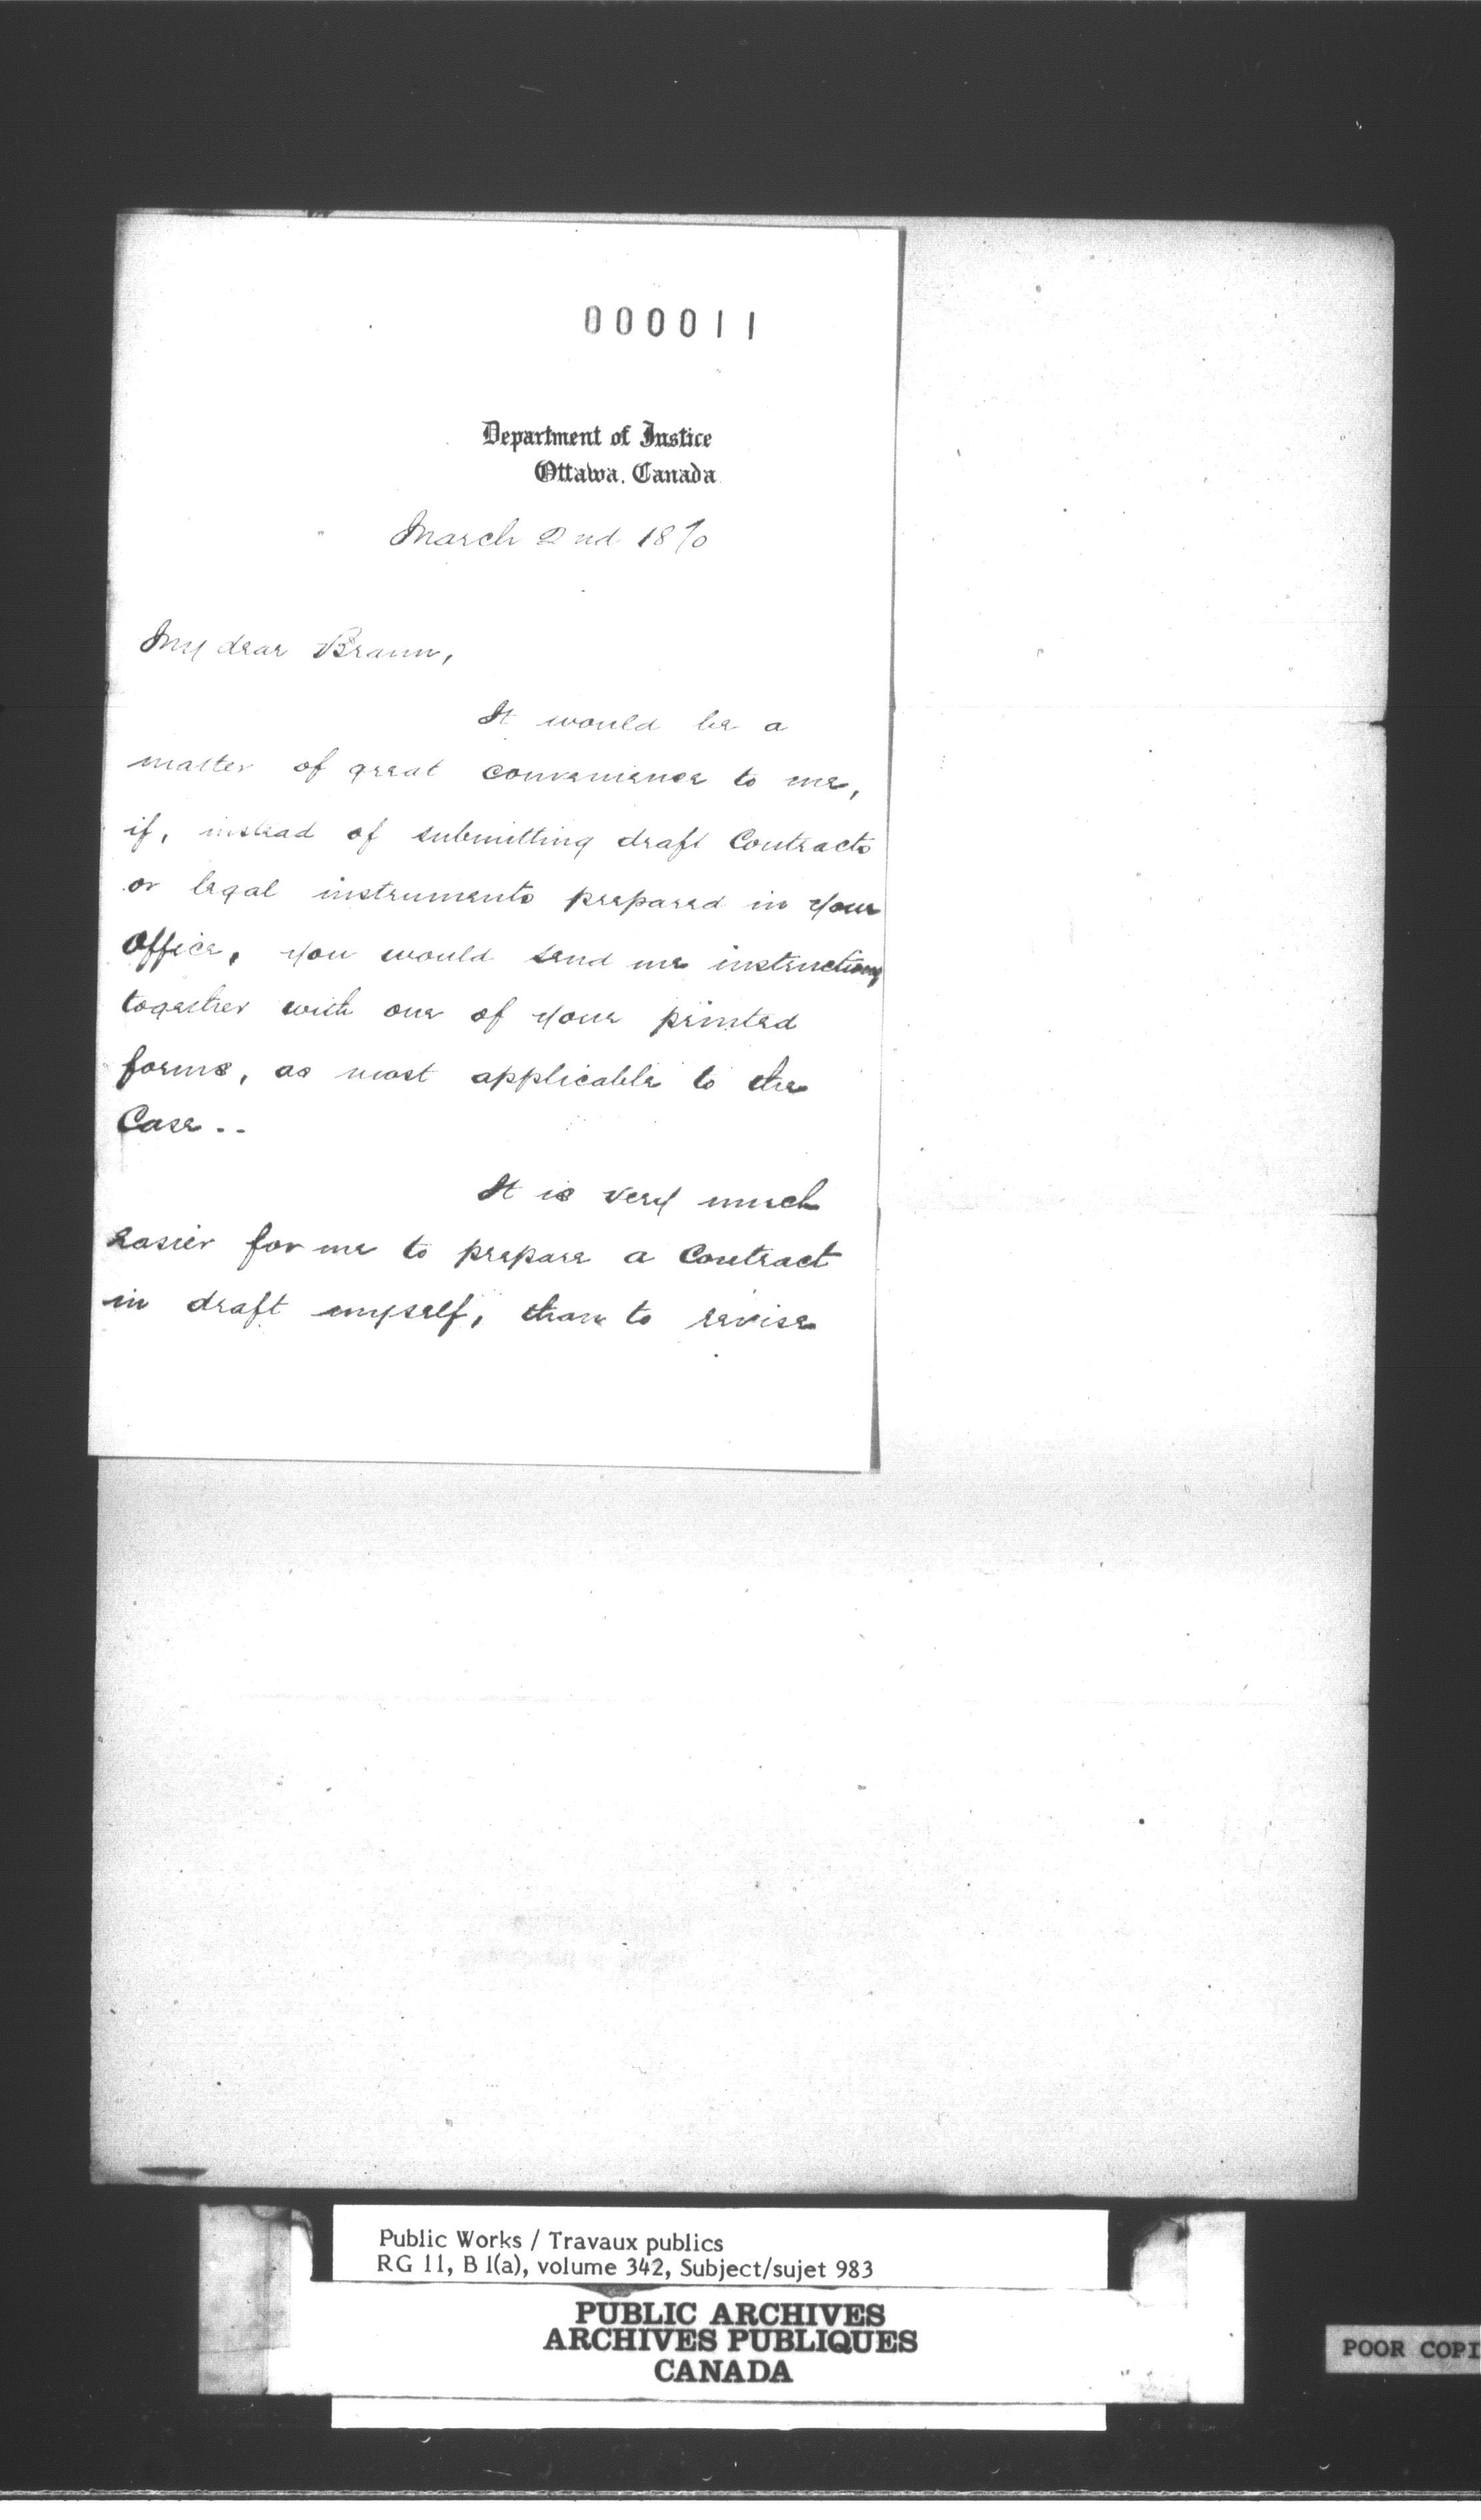 000011
Department of Justice
Ottawa. Canada
March 2nd 1870
My dear Braun,
It would be a
matter of great convenience to me,
if, instead of submitting draft Contracts
or legal instruments prepared in your
Office, you would send me instructions
together with one of your printed
forms, as most applicable to the
Case..
It is very much
easier for me to prepare a Contract
in draft myself, than to revise
Public Works / Travaux publics
RG 11, B 1(a), volume 342, Subject/sujet 983
PUBLIC ARCHIVES
ARCHIVES PUBLIQUES
CANADA
POOR COPI